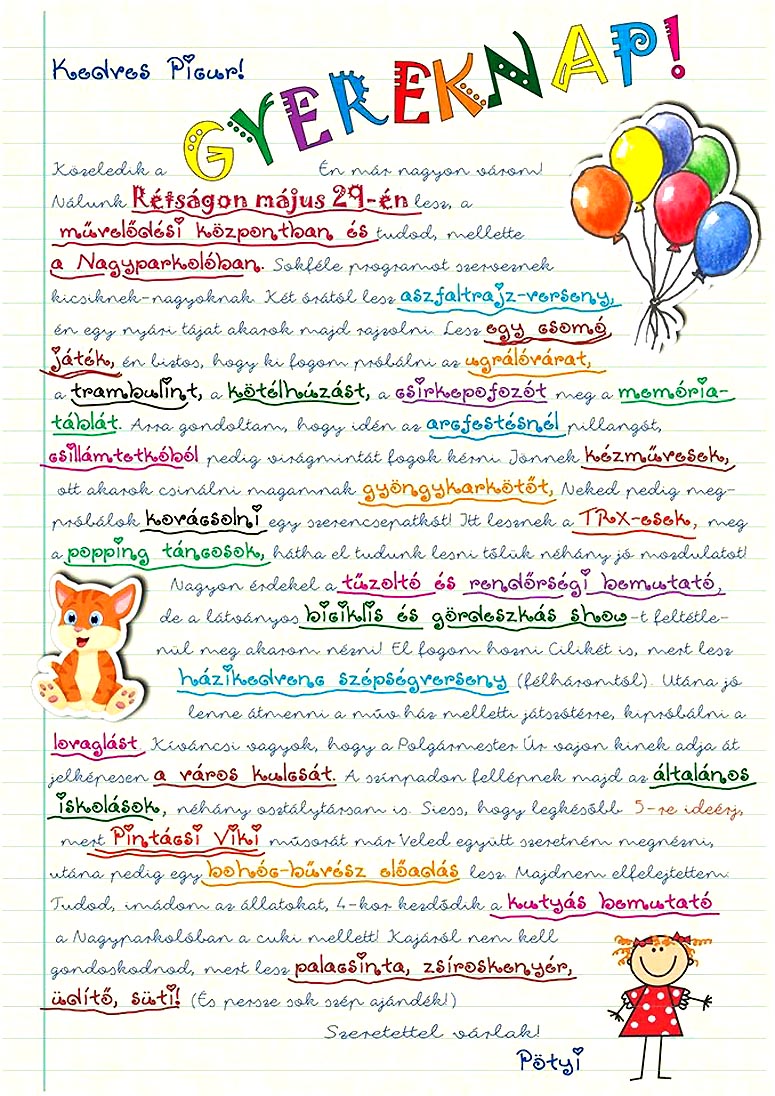 Kedves Picur!
GYEREKNAP!
Közeledik a Én már nagyon várom!
Nálunk Rétságon május 29-én lesz, a
művelődési központban és tudod, mellette
a Nagyparkolóban. Sokféle programot szerveznek
kicsiknek-nagyoknak. Két órától lesz aszfaltrajz-verseny,
én egy nyári tájat akarok majd rajzolni. Lesz egy csomó
játék, én biztos, hogy ki fogom próbálni az ugrálóvárat,
a trambulint, a kötélhúzást, a csirkepofozót meg a memória-
táblát. Arra gondoltam, hogy idén az arcfestésnél pillangót,
csillámtetkóból pedig virágmintát fogok kérni. Jönnek kézművesek,
ott akarok csinálni magamnak gyöngykarkötőt, Neked pedig meg-
próbálok kovácsolni egy szerencsepatkót! Itt lesznek a TRX-esek, meg
a popping táncosok, hátha el tudunk lesni tőlük néhány jó mozdulatot!
Nagyon érdekel a tűzoltó és rendőrségi bemutató,
de a látványos biciklis és gördeszkás show-t feltétle-
nül meg akarom nézni! El fogom hozni Cilikét is, mert lesz
házikedvenc szépségverseny (félháromtól). Utána jó
lenne átmenni a műv ház melletti játszótérre, kipróbálni a
lovaglást. Kíváncsi vagyok, hogy a Polgármester Úr vajon kinek adja át
jelképesen a város kulcsát. A színpadon fellépnek majd az általános
iskolások, néhány osztálytársam is. Siess, hogy legkésőbb 5-re ideérj,
mert Pintácsi Viki műsorát már Veled együtt szeretném megnézni,
utána pedig egy bohóc-bűvész előadás lesz. Majdnem elfelejtettem:
Tudod, imádom az állatokat, 4-kor kezdődik a kutyás bemutató
a Nagyparkolóban a cuki mellett! Kajáról nem kell
gondoskodnod, mert lesz palacsinta, zsíroskenyér,
üdítő, süti! (És persze sok szép ajándék!)
Szeretettel várlak!
Pötyi